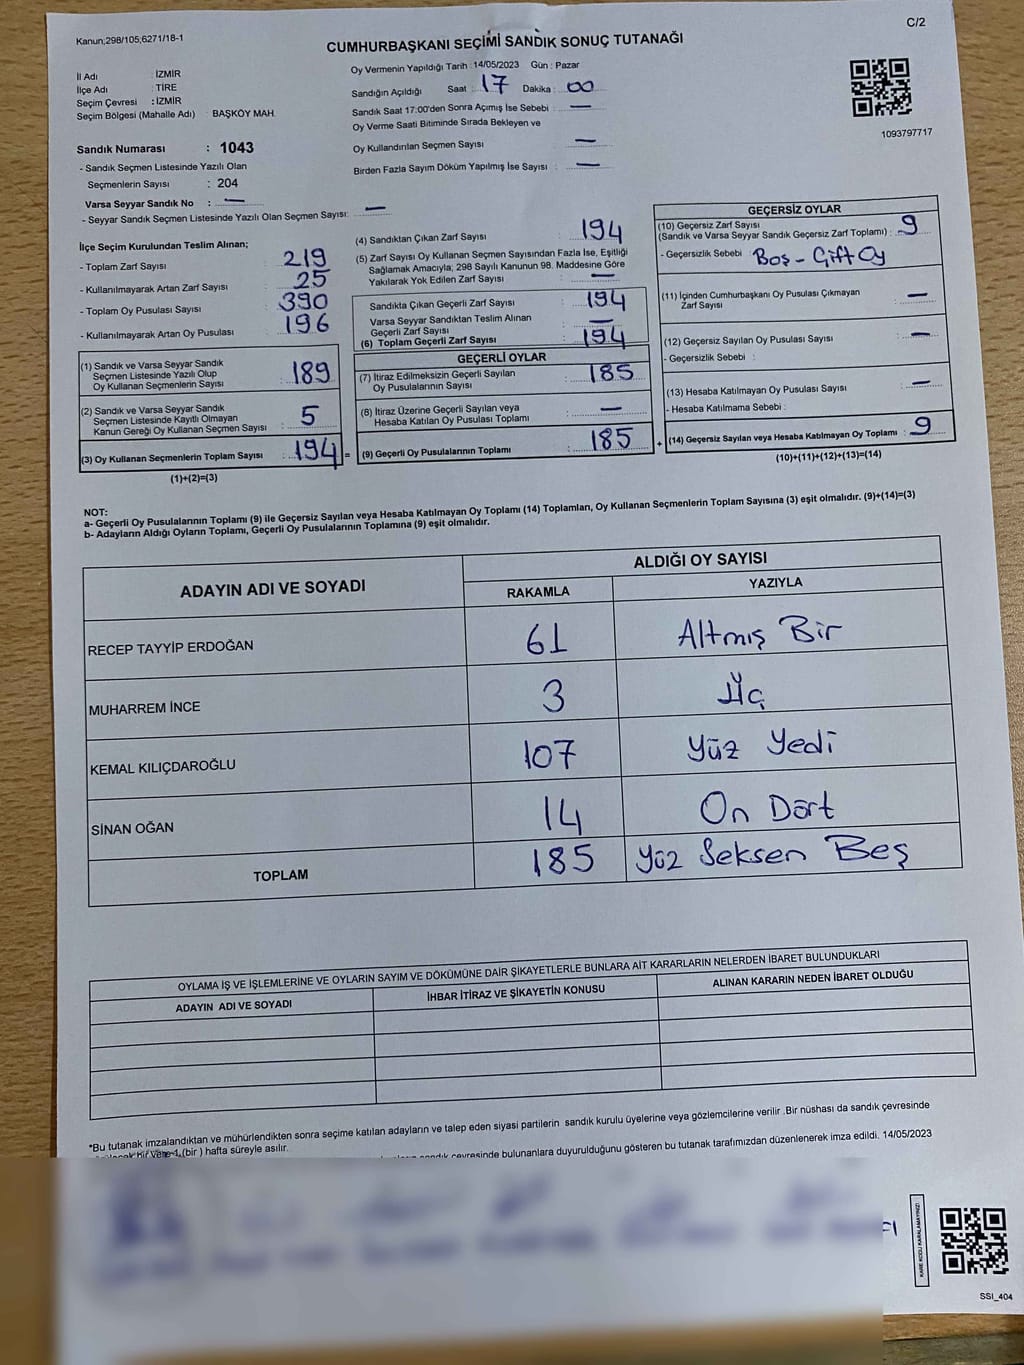 C/2
Kanun;298/105;6271/18-1
CUMHURBAŞKANI SEÇİMİ SANDIK SONUÇ TUTANAĞI
İl Adı : İZMİR
İlçe Adı : TİRE
Seçim Çevresi : İZMİR
Seçim Bölgesi (Mahalle Adı) : BAŞKÖY MAH.
Sandık Numarası : 1043
- Sandık Seçmen Listesinde Yazılı Olan
Seçmenlerin Sayısı : 204
Varsa Seyyar Sandık No : —
- Seyyar Sandık Seçmen Listesinde Yazılı Olan Seçmen Sayısı: —
Oy Vermenin Yapıldığı Tarih : 14/05/2023 Gün : Pazar
Sandığın Açıldığı Saat : 17 Dakika : 00
Sandık Saat 17:00'den Sonra Açımış İse Sebebi : —
Oy Verme Saati Bitiminde Sırada Bekleyen ve
Oy Kullandırılan Seçmen Sayısı : —
Birden Fazla Sayım Döküm Yapılmış İse Sayısı : —
1093797717
İlçe Seçim Kurulundan Teslim Alınan;
- Toplam Zarf Sayısı : 219
- Kullanılmayarak Artan Zarf Sayısı : 25
- Toplam Oy Pusulası Sayısı : 390
- Kullanılmayarak Artan Oy Pusulası : 196
(1) Sandık ve Varsa Seyyar Sandık
Seçmen Listesinde Yazılı Olup
Oy Kullanan Seçmenlerin Sayısı : 189
(2) Sandık ve Varsa Seyyar Sandık
Seçmen Listesinde Kayıtlı Olmayan
Kanun Gereği Oy Kullanan Seçmen Sayısı : 5
(3) Oy Kullanan Seçmenlerin Toplam Sayısı : 194 =
(1)+(2)=(3)
(4) Sandıktan Çıkan Zarf Sayısı : 194
(5) Zarf Sayısı Oy Kullanan Seçmen Sayısından Fazla İse, Eşitliği
Sağlamak Amacıyla; 298 Sayılı Kanunun 98. Maddesine Göre
Yakılarak Yok Edilen Zarf Sayısı : —
Sandıkta Çıkan Geçerli Zarf Sayısı : 194
Varsa Seyyar Sandıktan Teslim Alınan
Geçerli Zarf Sayısı : —
(6) Toplam Geçerli Zarf Sayısı : 194
GEÇERLİ OYLAR
(7) İtiraz Edilmeksizin Geçerli Sayılan
Oy Pusulalarının Sayısı : 185
(8) İtiraz Üzerine Geçerli Sayılan veya
Hesaba Katılan Oy Pusulası Toplamı : —
(9) Geçerli Oy Pusulalarının Toplamı : 185 +
GEÇERSİZ OYLAR
(10) Geçersiz Zarf Sayısı
(Sandık ve Varsa Seyyar Sandık Geçersiz Zarf Toplamı) : 9
- Geçersizlik Sebebi : Boş - Çift Oy
(11) İçinden Cumhurbaşkanı Oy Pusulası Çıkmayan
Zarf Sayısı : —
(12) Geçersiz Sayılan Oy Pusulası Sayısı : —
- Geçersizlik Sebebi :
(13) Hesaba Katılmayan Oy Pusulası Sayısı : —
- Hesaba Katılmama Sebebi :
(14) Geçersiz Sayılan veya Hesaba Katılmayan Oy Toplamı : 9
(10)+(11)+(12)+(13)=(14)
NOT:
a- Geçerli Oy Pusulalarının Toplamı (9) ile Geçersiz Sayılan veya Hesaba Katılmayan Oy Toplamı (14) Toplamları, Oy Kullanan Seçmenlerin Toplam Sayısına (3) eşit olmalıdır. (9)+(14)=(3)
b- Adayların Aldığı Oyların Toplamı, Geçerli Oy Pusulalarının Toplamına (9) eşit olmalıdır.
ADAYIN ADI VE SOYADI ALDIĞI OY SAYISI
RAKAMLA YAZIYLA
RECEP TAYYİP ERDOĞAN 61 Altmış Bir
MUHARREM İNCE 3 Üç
KEMAL KILIÇDAROĞLU 107 Yüz Yedi
SİNAN OĞAN 14 On Dört
TOPLAM 185 Yüz Seksen Beş
OYLAMA İŞ VE İŞLEMLERİNE VE OYLARIN SAYIM VE DÖKÜMÜNE DAİR ŞİKAYETLERLE BUNLARA AİT KARARLARIN NELERDEN İBARET BULUNDUKLARI
ADAYIN ADI VE SOYADI İHBAR İTİRAZ VE ŞİKAYETİN KONUSU ALINAN KARARIN NEDEN İBARET OLDUĞU
*Bu tutanak imzalandıktan ve mühürlendikten sonra seçime katılan adayların ve talep eden siyasi partilerin sandık kurulu üyelerine veya gözlemcilerine verilir .Bir nüshası da sandık çevresinde
(bir ) hafta süreyle asılır.
sandık çevresinde bulunanlara duyurulduğunu gösteren bu tutanak tarafımızdan düzenlenerek imza edildi. 14/05/2023
KARE KODU KARALAMAYINIZ!
SSI_404